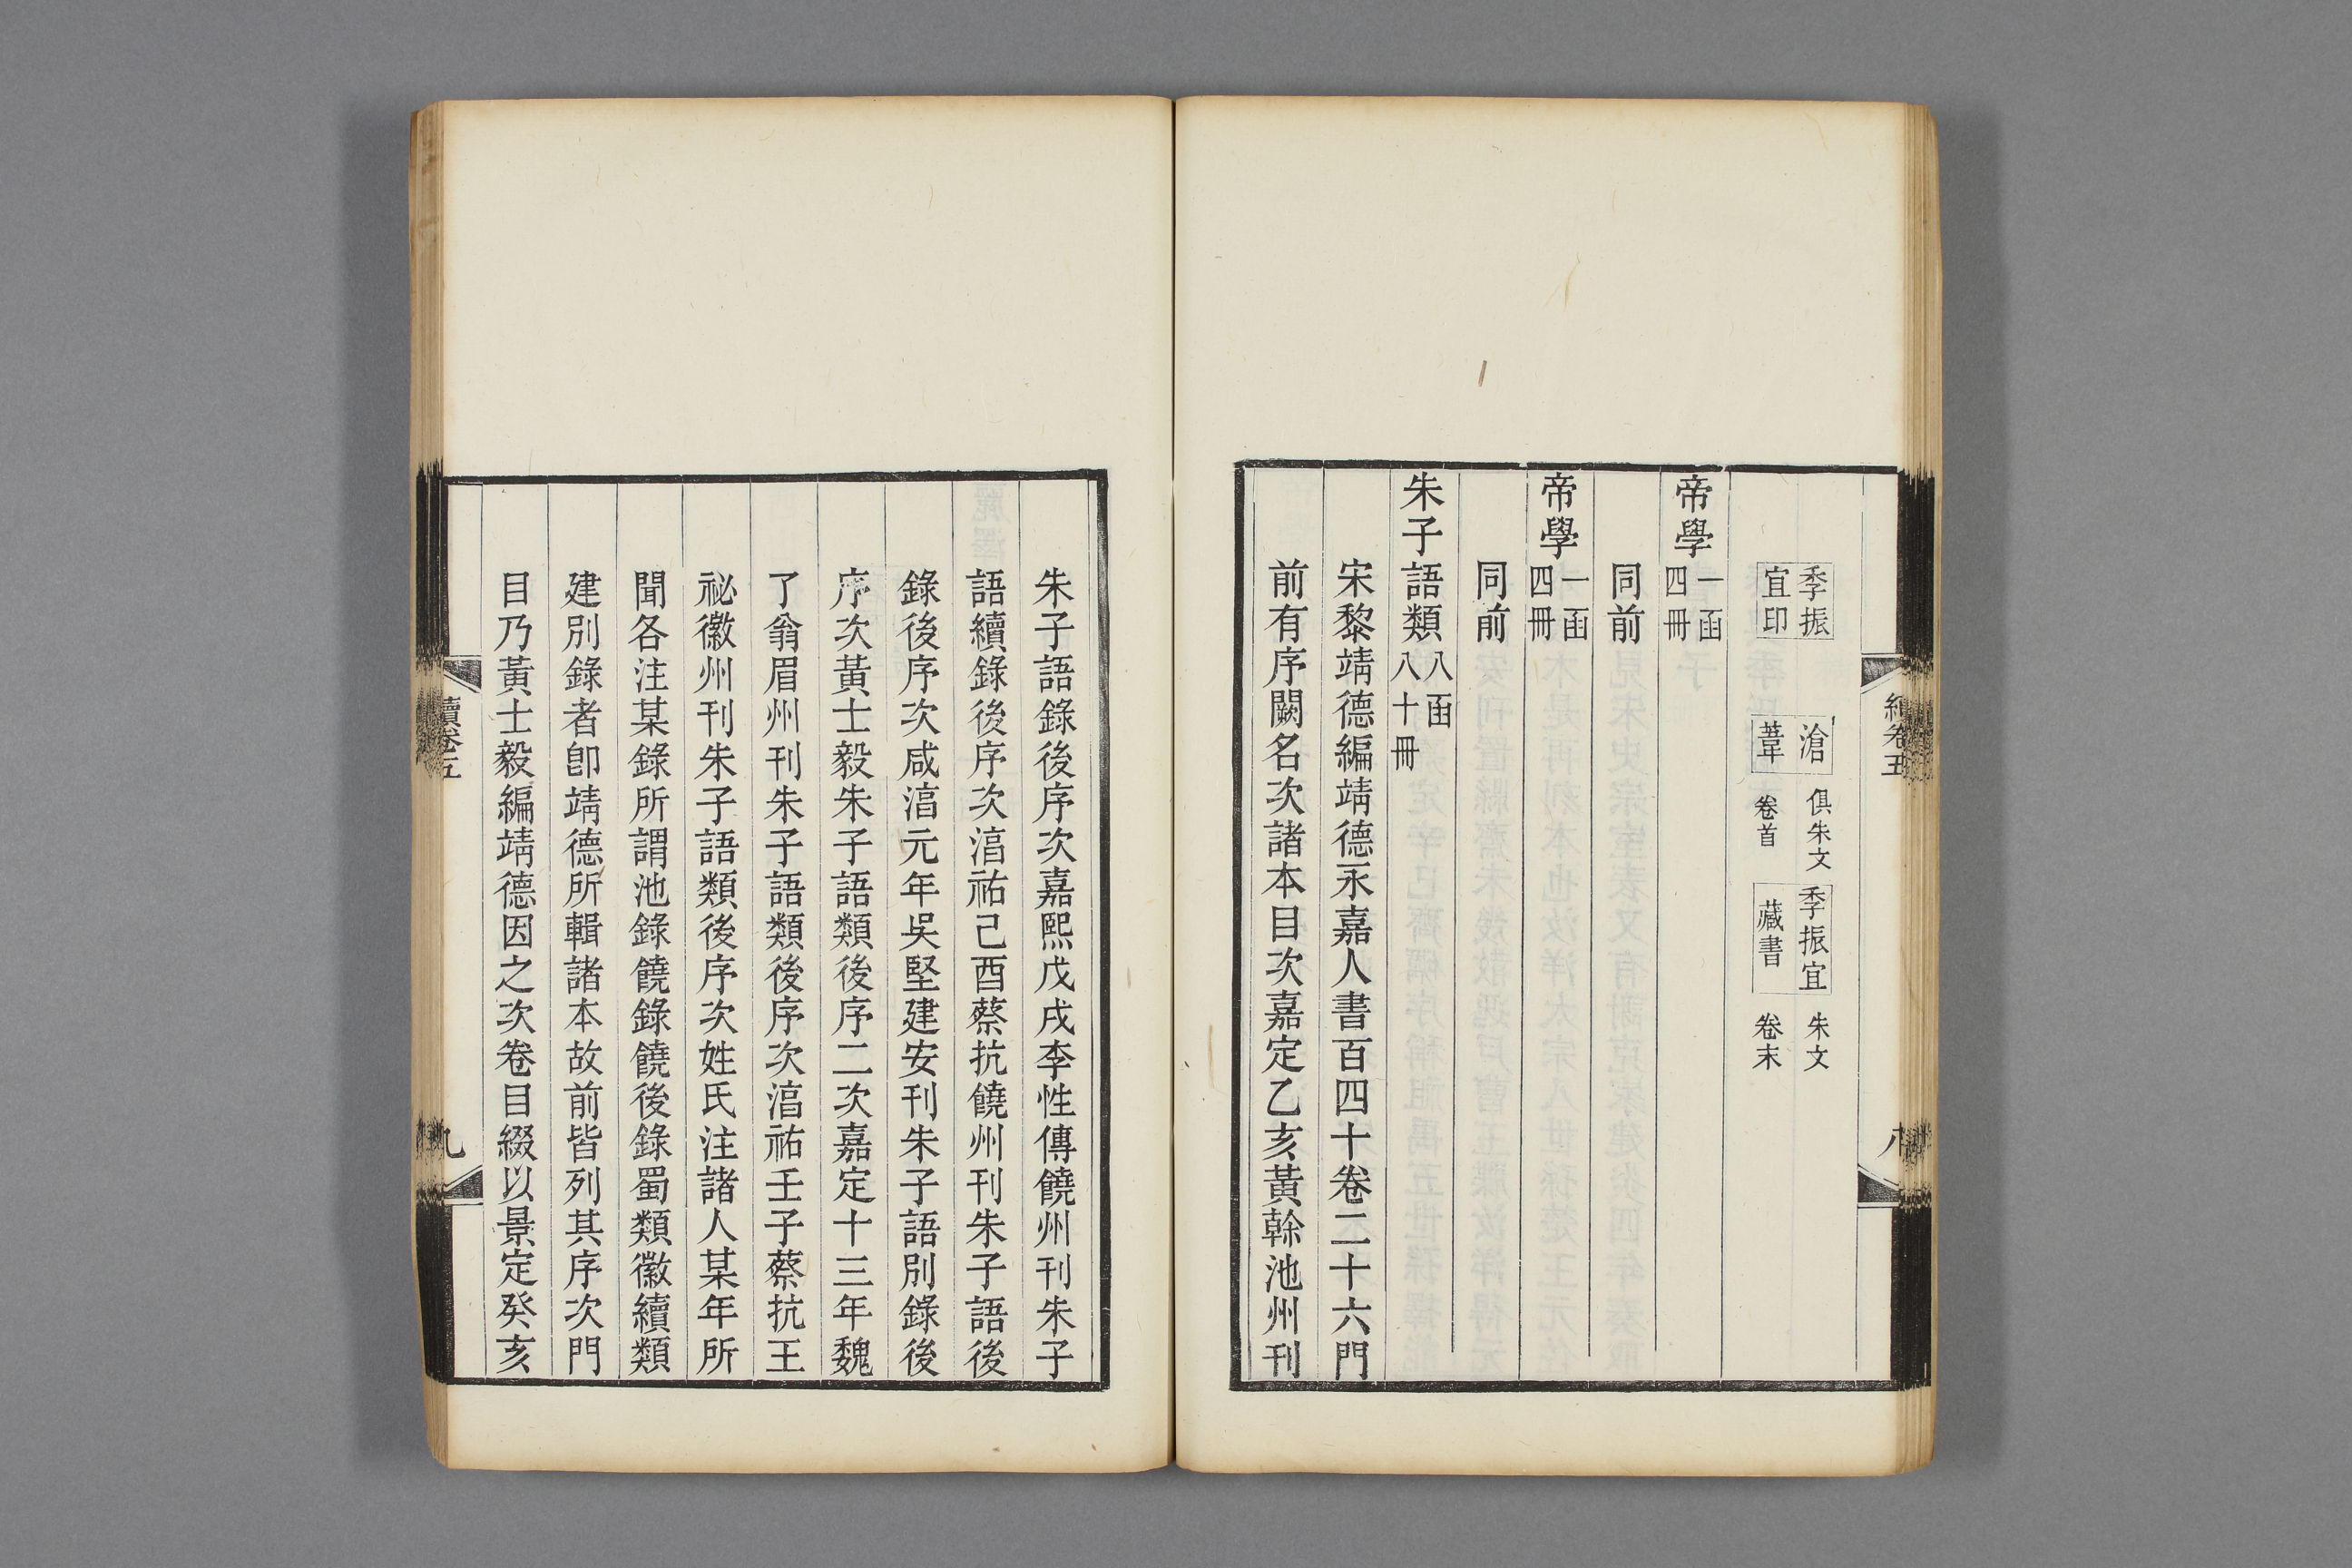 季振宜印 滄葦 俱朱文卷首 季振宜藏書 朱文卷末
帝學一函四冊
同前
帝學一函四冊
同前
朱子語類八函八十冊
宋黎靖德編靖德永嘉人書百四十卷二十六門
前有序闕名次諸本目次嘉定乙亥黃榦池州刊
朱子語錄後序次嘉熙戊戌李性傳饒州刊朱子
語續錄後序次湻祐己酉蔡抗饒州刊朱子語後
錄後序次咸湻元年吳堅建安刊朱子語別錄後
序次黃士毅朱子語類後序二次嘉定十三年魏
了翁眉州刊朱子語類後序次湻祐壬子蔡抗王
祕徽州刊朱子語類後序次姓氏注諸人某年所
聞各注某錄所謂池錄饒錄饒後錄蜀類徽續類
建別錄者卽靖德所輯諸本故前皆列其序次門
目乃黃士毅編靖德因之次卷目綴以景定癸亥
續卷五
九